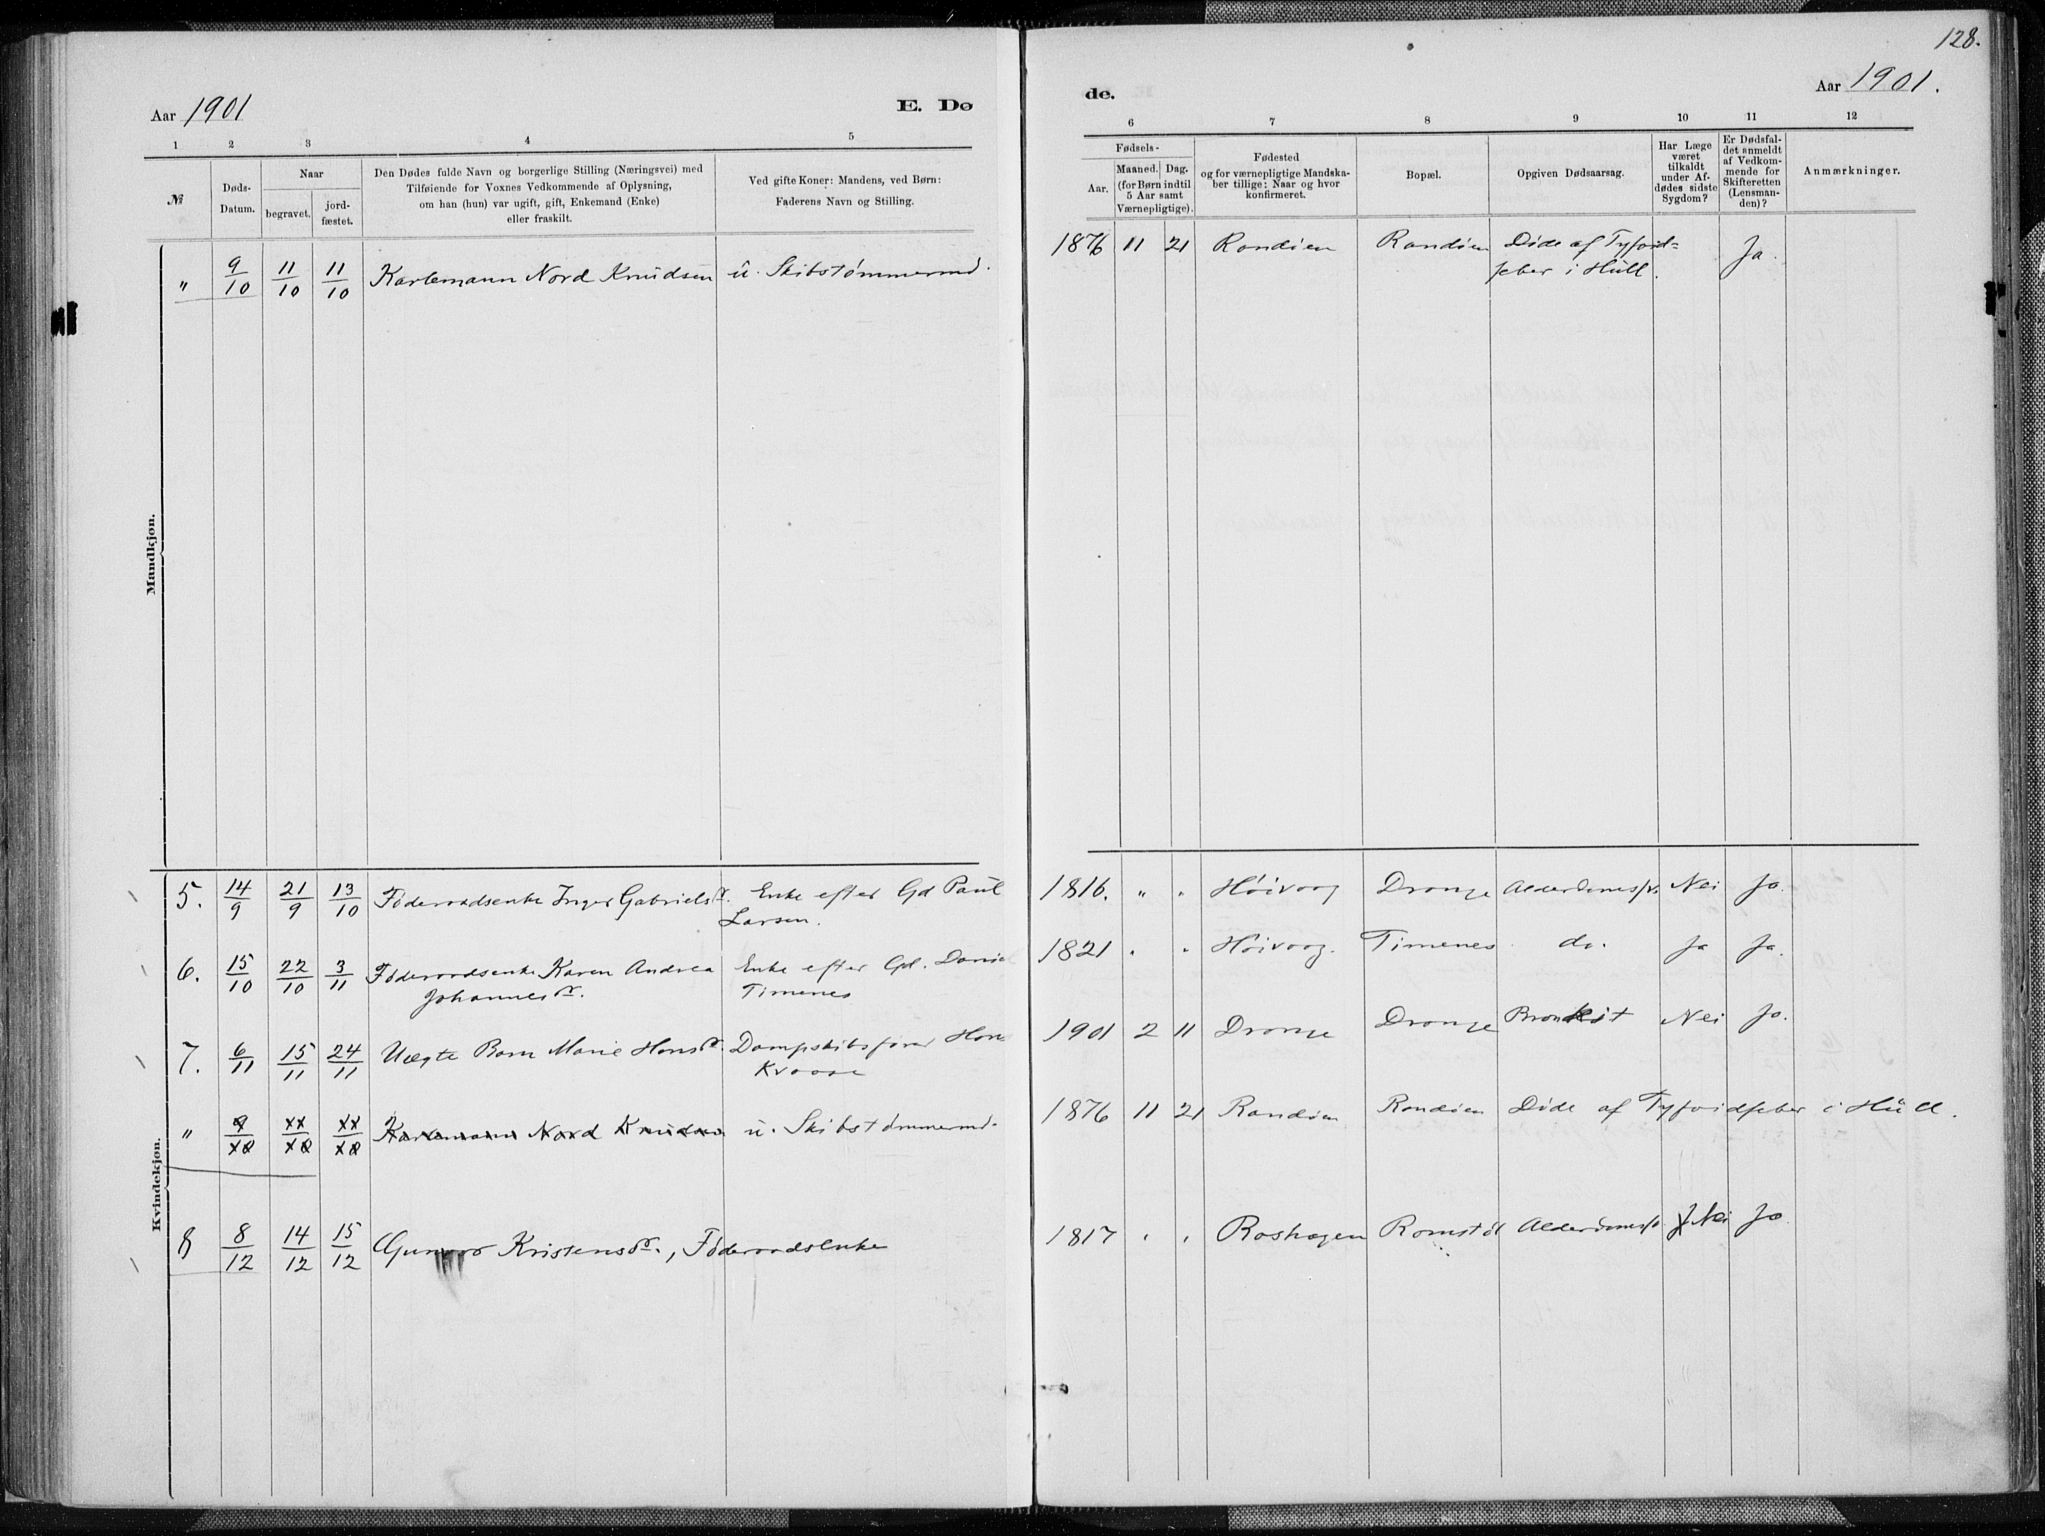 128.
Aar 1901
E. Dø
de.
Aar 1901.
1 2 3 4 5
6 7 8 9 10 11 12
№
Døds-
Datum.
Naar
begravet.
jord-
fæstet.
Den Dødes fulde Navn og borgerlige Stilling (Næringsvei) med
Tilføiende for Voxnes Vedkommende af Oplysning,
om han (hun) var ugift, gift, Enkemand (Enke)
eller fraskilt.
Ved gifte Koner: Mandens, ved Børn:
Faderens Navn og Stilling.
Fødsels-
Aar.
Maaned. Dag.
(for Børn indtil
5 Aar samt
Værnepligtige).
Fødested
og for værnepligtige Mandska-
ber tillige: Naar og hvor
konfirmeret.
Bopæl.
Opgiven Dødsaarsag.
Har Læge
været
tilkaldt
under Af-
dødes sidste
Sygdom?
Er Dødsfal-
det anmeldt
af Vedkom-
mende for
Skifteretten
(Lensman-
den)?
Anmærkninger.
Mandkjøn.
" 9/10 11/10 11/10 Karlemann Nord Knudsen u. Skibstømmermd. 1876 11 21 Randøen Randøen Døde af Tyfoid=
feber i Hull. Ja.
Kvindekjøn.
5. 14/9 21/9 13/10 Føderaadsenke Inger Gabrielsdr. Enke efter Gd Paul 1816. " " Høivaag Drange Alderdomssv. Nei Ja.
Larsen.
6. 15/10 22/10 3/11 Føderaadsenke Karen Andrea Enke efter Gd. Daniel 1821 " " Høivaag. Timenes do. Ja Ja.
Johannesdr. Timenes
7. 6/11 15/11 24/11 Uægte Barn Marie Hansdr. Dampskibsfører Hans 1901 2 11 Drange Drange Bronkit Nei Ja.
Kvaase
" 9/10 11/10 11/10 Karlemann Nord Knudsen u. Skibstømmermd. 1876 11 21 Randøen Randøen Døde af Tyfoidfeber i Hull.
8 8/12 14/12 15/12 Kristensdr., Føderaadsenke 1817 " " Roshagen Romstøl Alderdomssv. Nei Ja.